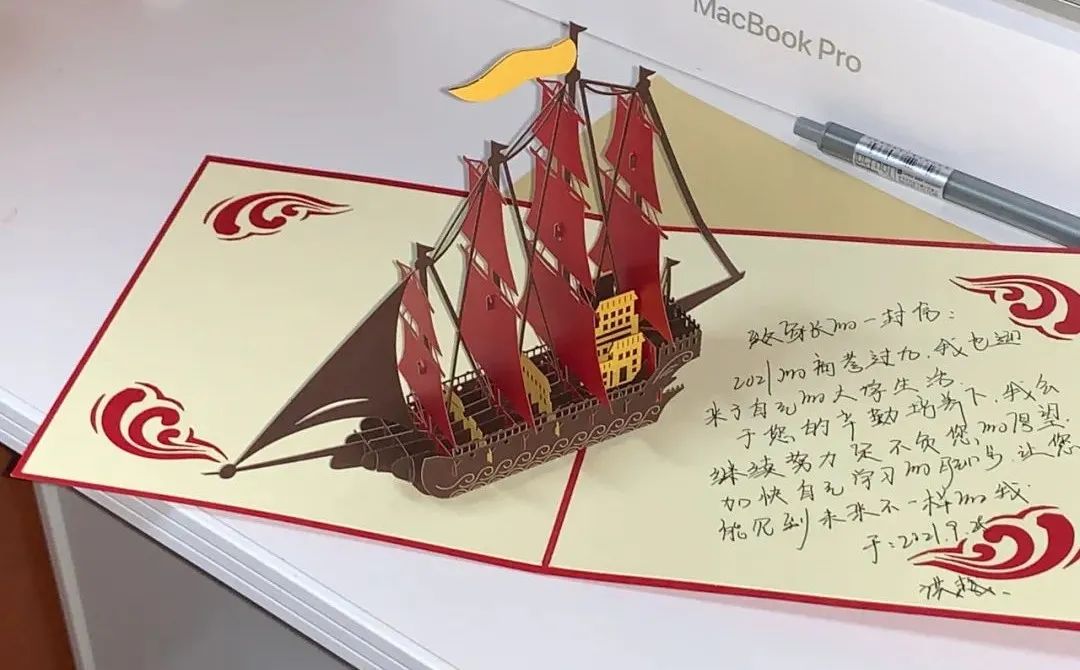 MacBook Pro
致家长的一封信:
2021的初苍过九,我也迎
来了自己的大学生活.
于您的辛勤培养下,我会
继续努力 不负您的愿望.
加快自己学习的 让您
能见到未来不一样的我
于:2021.9.